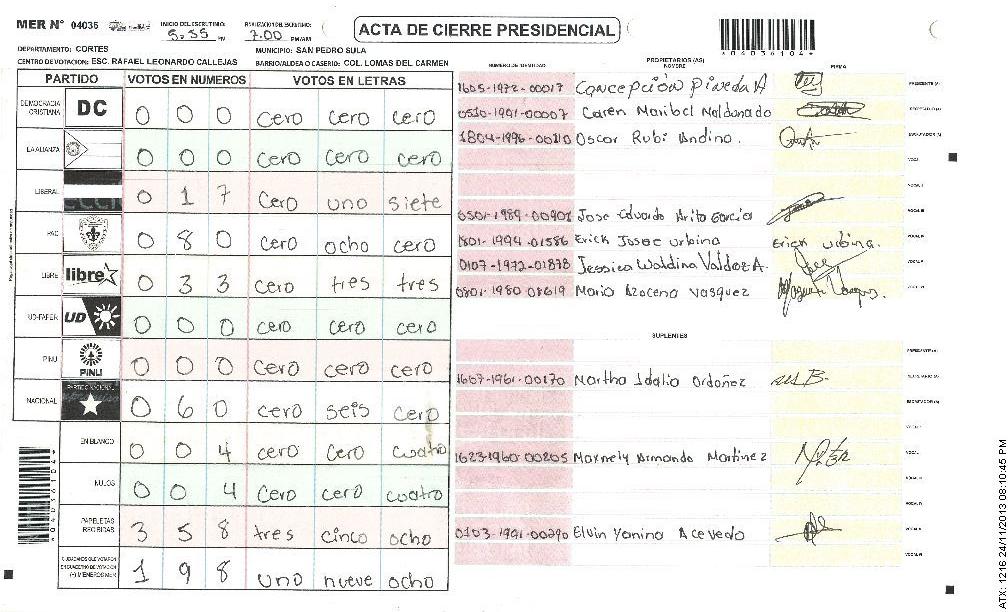 MER N° 04036
INICIO DEL ESCRUTINIO: 5:55 PM
FINALIZACION DEL ESCRUTINIO: 7:00 PM/AM
ACTA DE CIERRE PRESIDENCIAL
*04036104*
DEPARTAMENTO: CORTES
MUNICIPIO: SAN PEDRO SULA
CENTRO DE VOTACION: ESC. RAFAEL LEONARDO CALLEJAS
BARRIO/ALDEA O CASERIO: COL. LOMAS DEL CARMEN
PARTIDO VOTOS EN NUMEROS VOTOS EN LETRAS
DEMOCRACIA CRISTIANA DC 0 0 0 cero cero cero
LA ALIANZA 0 0 0 cero cero cero
LIBERAL 0 1 7 cero uno siete
PAC 0 8 0 cero ocho cero
LIBRE libre 0 3 3 cero tres tres
UD-FAPER UD 0 0 0 cero cero cero
PINU PINU 0 0 0 cero cero cero
NACIONAL PARTIDO NACIONAL 0 6 0 cero seis cero
EN BLANCO 0 0 4 cero cero cuatro
NULOS 0 0 4 cero cero cuatro
PAPELETAS RECIBIDAS 3 5 8 tres cinco ocho
CIUDADANOS QUE VOTARON EN CUADERNO DE VOTACION (+) MIEMBROS MER 1 9 8 uno nueve ocho
*04036104*
PROPIETARIOS (AS)
NUMERO DE IDENTIDAD NOMBRE FIRMA
1605-1972-00017 Concepción Pineda A PRESIDENTE (A)
0510-1991-00007 Caren Maribel Maldonado SECRETARIO (A)
1804-1996-00210 Oscar Rubi Andino. ESCRUTADOR (A)
VOCAL I
VOCAL II
0501-1989-00901 Jose Eduardo Arita Garcia VOCAL III
1801-1994-01586 Erick Josue urbina Erick urbina. VOCAL IV
0107-1972-01878 Jessica Waldina Valdez A. VOCAL V
0801-1980-08619 Mario Azocena Vasquez VOCAL VI
SUPLENTES
PRESIDENTE (A)
1607-1961-00170 Martha Idalia Ordoñez SECRETARIO (A)
ESCRUTADOR (A)
VOCAL I
1623-1960-00205 Maxnely Armando Martinez VOCAL II
VOCAL III
VOCAL IV
0103-1991-00290 Elvin Yanina Acevedo VOCAL V
VOCAL VI
ATX: 1216 24/11/2013 08:10:45 PM